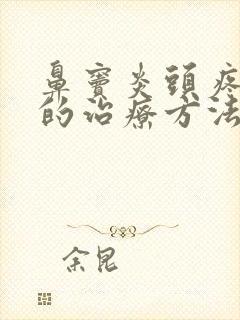 鼻竇炎頭疼
的治療方法
余昆